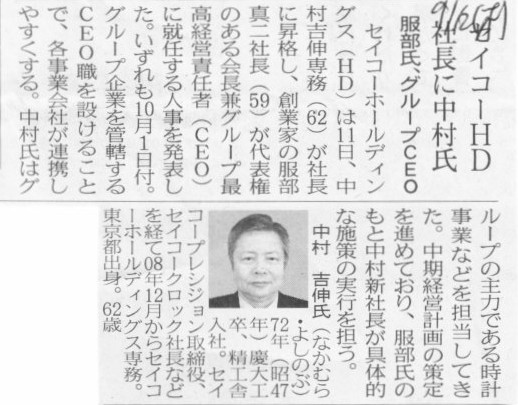 セイコーHD
社長に中村氏
服部氏、グループCEO
セイコーホールディン
グス（HD）は11日、中
村吉伸専務（62）が社長
に昇格し、創業家の服部
真二社長（59）が代表権
のある会長兼グループ最
高経営責任者（CEO）
に就任する人事を発表し
た。いずれも10月1日付。
グループ企業を管轄する
CEO職を設けること
で、各事業会社が連携し
やすくする。中村氏はグ
ループの主力である時計
事業などを担当してき
た。中期経営計画の策定
を進めており、服部氏の
もと中村新社長が具体的
な施策の実行を担う。
中村 吉伸氏（なかむら
・よしのぶ）
72年（昭47
年）慶大工
卒、精工舎
入社。セイ
コープレシジョン取締役、
セイコークロック社長など
を経て08年12月からセイコ
ーホールディングス専務。
東京都出身。62歳